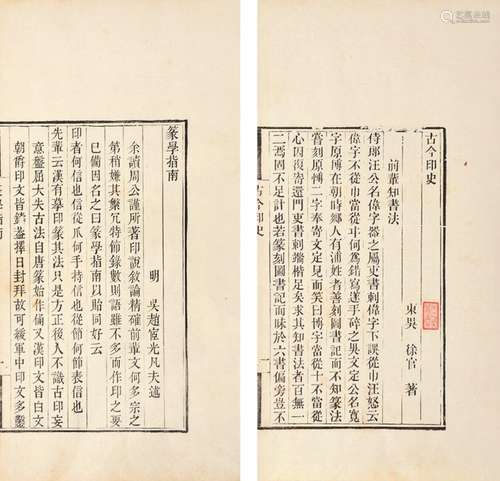 古今印史
東吳 徐官 著
前輩知書法
侍郎汪公名偉字器之屬吏書刺偉字下誤從巾汪怒云
偉字不從巾當從㐄何為錯寫遂手碎之吳文定公名寬
字原博在朝時鄉人有浦姓者善刻圖書記而不知篆法
嘗刻原博二字奉寄文定見而笑曰博字當從十不當從
心因復寄還門吏書刺撥楷足矣求其知書法者百無一
二焉固不足計也若篆刻圖書記而昧於六書偏旁豈不
古今印史
一
篆學指南
明 吳趙宦光凡夫述
余讀周公謹所著印說敘論精確前輩文何多宗之
第稍嫌其繫冗特節錄數則語雖不多而作印之要
已備因名之曰篆學指南以貽同好云
印者何信也從爪何手持信也從卪何節表信也
先輩云漢有摹印篆其法只是方正後人不識古印妄
意盤屈大失古法自唐篆始作俑又漢印文皆白文
朝爵印文皆鑄蓋擇日封拜故可緩軍中印文多鑿
篆學指南
一